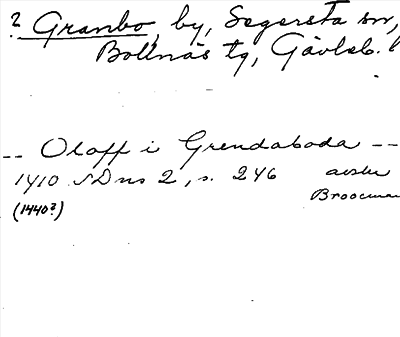 ? Granbo, by, Segersta sn,
Bollnäs tg, Gävleb. l
-- Oloff i Grendaboda --
1410 SDns 2, s. 246 avskr
(1440?) Brooman